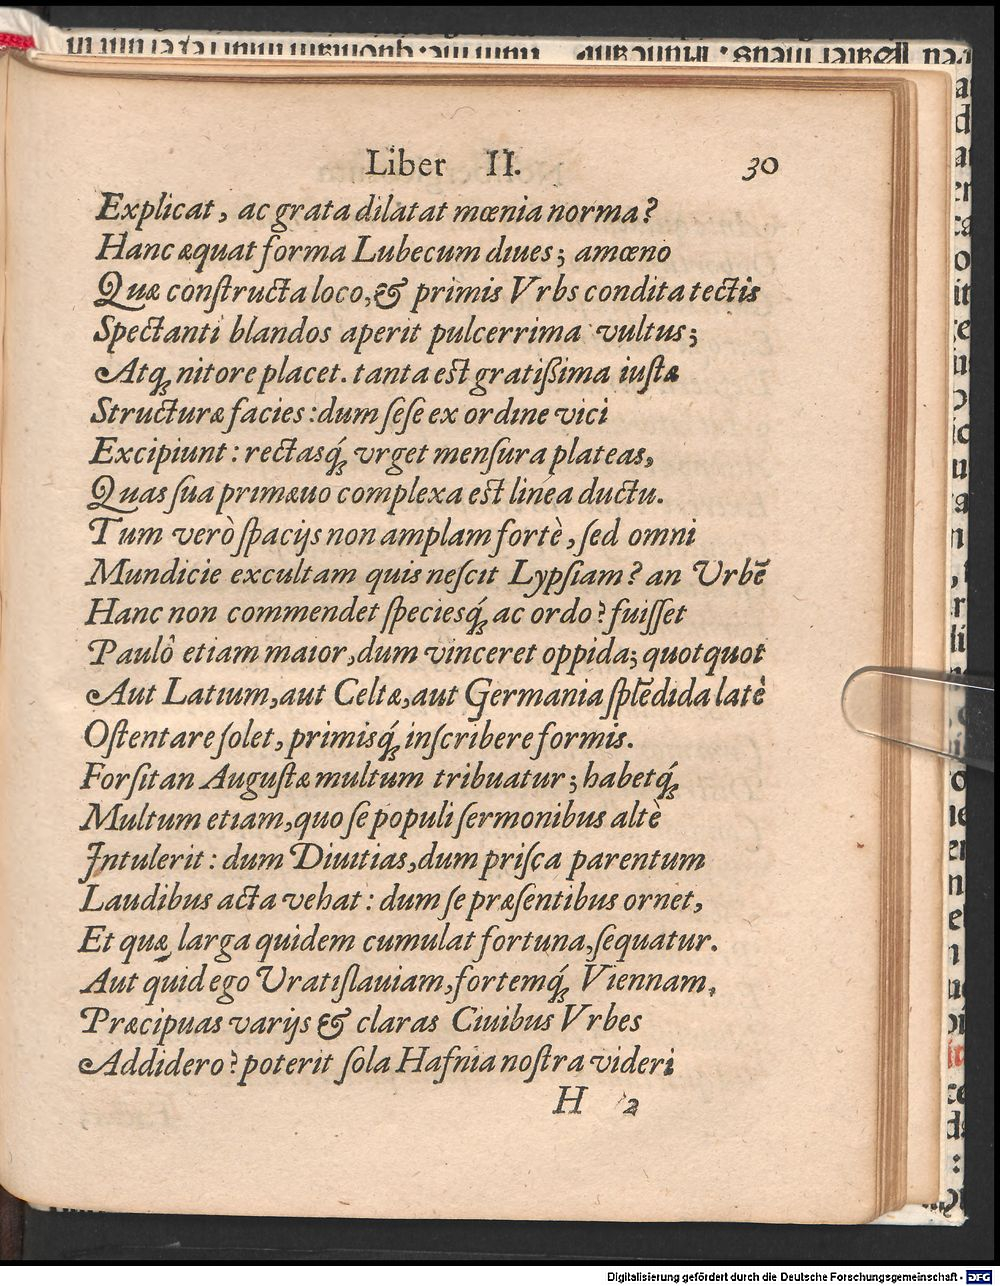 Liber II. 30
Explicat, ac grata dilatat mœnia norma?
Hanc æquat forma Lubecum diues; amœno
Quæ conſtructa loco, & primis Vrbs condita tectis
Spectanti blandos aperit pulcerrima vultus;
Atq́; nitore placet. tanta eſt gratiſsima iuſtæ
Structuræ facies: dum ſeſe ex ordine vici
Excipiunt: rectasq́; vrget menſura plateas,
Quas ſua primæuo complexa eſt linéa ductu.
Tum verò ſpacijs non amplam fortè, ſed omni
Mundicie excultam quis neſcit Lypſiam? an Vrbẽ
Hanc non commendet ſpeciesq́; ac ordo? fuiſſet
Paulô etiam maior, dum vinceret oppida; quotquot
Aut Latium, aut Celtæ, aut Germania ſplẽdida latè
Oſtentare ſolet, primisq́; inſcribere formis.
Forſitan Auguſtæ multum tribuatur; habetq́;
Multum etiam, quo ſe populi ſermonibus altè
Intulerit: dum Diuitias, dum priſca parentum
Laudibus acta vehat: dum ſe præſentibus ornet,
Et quæ larga quidem cumulat fortuna, ſequatur.
Aut quid ego Vratiſlauiam, fortemq́; Viennam,
Præcipuas varijs & claras Ciuibus Vrbes
Addidero? poterit ſola Hafnia noſtra videri
H 2
Digitalisierung gefördert durch die Deutsche Forschungsgemeinschaft - DFG